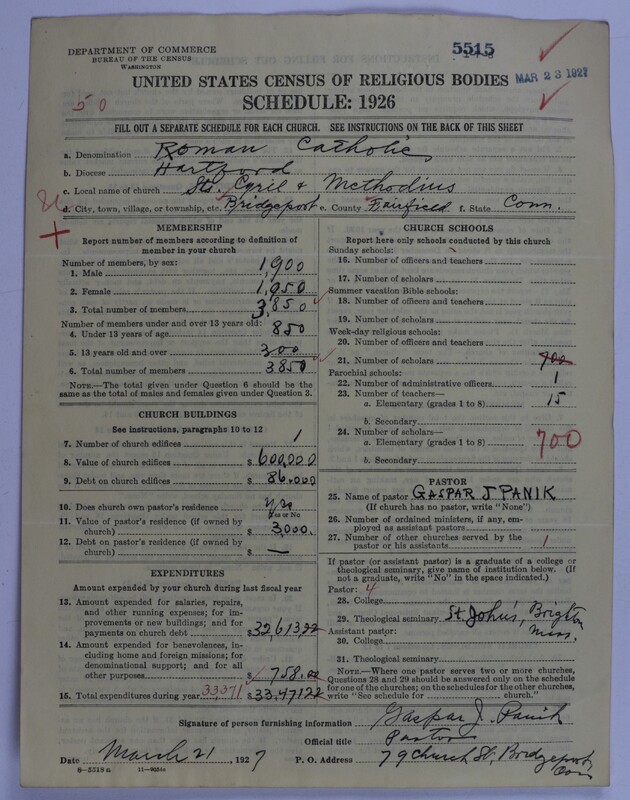 DEPARTMENT OF COMMERCE
BUREAU OF THE CENSUS
WASHINGTON
5515
MAR 23 1927
UNITED STATES CENSUS OF RELIGIOUS BODIES
SCHEDULE: 1926
50
FILL OUT A SEPARATE SCHEDULE FOR EACH CHURCH. SEE INSTRUCTIONS ON THE BACK OF THIS SHEET
a. Denomination Roman Catholic
b. Diocese Hartford
c. Local name of church Sts. Cyril & Methodius
d. City, town, village, or township, etc. Bridgeport e. County Fairfield f. State Conn.
MEMBERSHIP
Report number of members according to definition of
member in your church
Number of members, by sex:
1. Male 1,900
2. Female 1,950
3. Total number of members 3,850
Number of members under and over 13 years old:
4. Under 13 years of age 850
5. 13 years old and over 300
6. Total number of members 3850
NOTE.—The total given under Question 6 should be the
same as the total of males and females given under Question 3.
CHURCH BUILDINGS
See instructions, paragraphs 10 to 12
7. Number of church edifices 1
8. Value of church edifices $ 600,000
9. Debt on church edifices $ 86,000
10. Does church own pastor's residence? yes
Yes or No
11. Value of pastor's residence (if owned by
church) $ 3,000.
12. Debt on pastor's residence (if owned by
church) $ —
EXPENDITURES
Amount expended by your church during last fiscal year
13. Amount expended for salaries, repairs,
and other running expenses; for im-
provements or new buildings; and for
payments on church debt $ 32,613.22
14. Amount expended for benevolences, in-
cluding home and foreign missions; for
denominational support; and for all
other purposes $ 758.00
15. Total expenditures during year 33,371 $ 33,471.22
CHURCH SCHOOLS
Report here only schools conducted by this church
Sunday schools:
16. Number of officers and teachers
17. Number of scholars
Summer vacation Bible schools:
18. Number of officers and teachers
19. Number of scholars
Week-day religious schools:
20. Number of officers and teachers
21. Number of scholars 700
Parochial schools:
22. Number of administrative officers 1
23. Number of teachers—
a. Elementary (grades 1 to 8) 15
b. Secondary
24. Number of scholars—
a. Elementary (grades 1 to 8) 700
b. Secondary
PASTOR
25. Name of pastor GASPAR J PANIK
(If church has no pastor, write "None")
26. Number of ordained ministers, if any, em-
ployed as assistant pastors
27. Number of other churches served by the
pastor or his assistants 1
If pastor (or assistant pastor) is a graduate of a college or
theological seminary, give name of institution below. (If
not a graduate, write "No" in the space indicated.)
Pastor: 4
28. College
29. Theological seminary St. John's, Brigton
Mass.
Assistant pastor:
30. College
31. Theological seminary
NOTE.—Where one pastor serves two or more churches,
Questions 28 and 29 should be answered only on the schedule
for one of the churches; on the schedules for the other churches,
write "See schedule for church."
Signature of person furnishing information Gaspar J. Panik
Official title Pastor
Date March 21, 1927 P. O. Address 79 Church St, Bridgeport
Conn
8-5518a 11-9254a